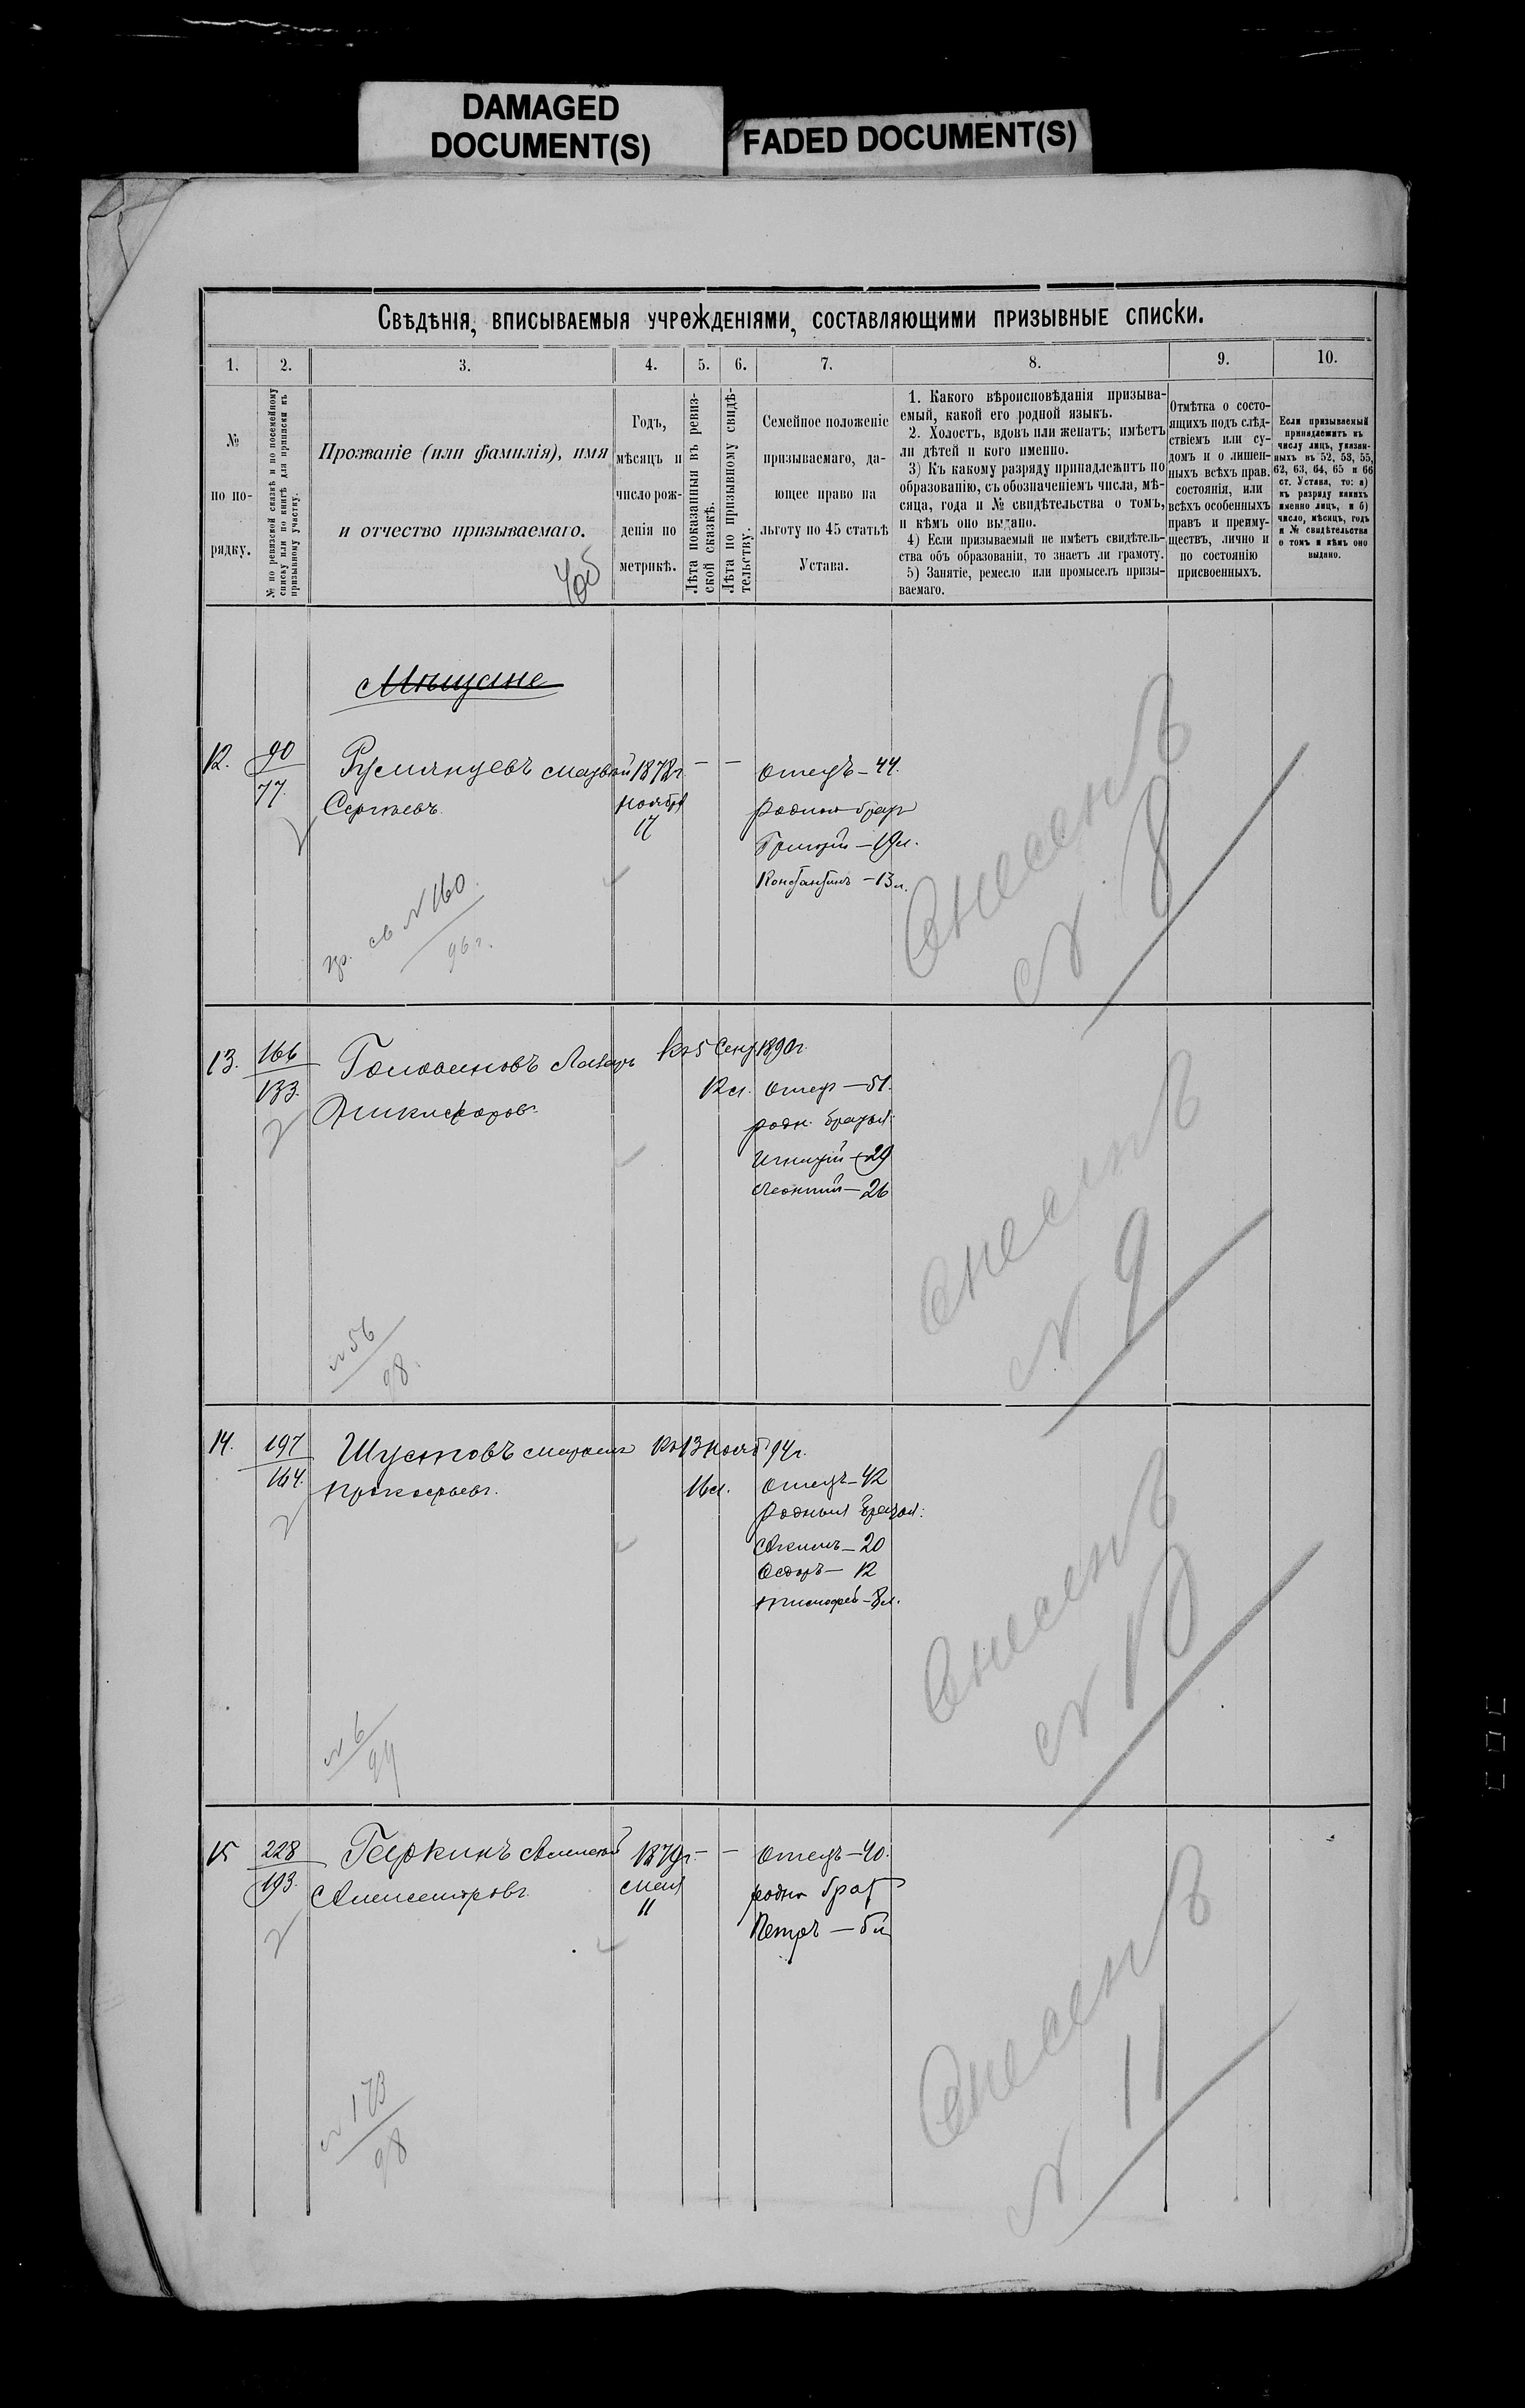 DAMAGED
DOCUMENT(S)
FADED DOCUMENT(S)
Свѣдѣнія, вписываемыя учрежденіями, составляющими призывные списки.
1.
2.
3.
4.
5.
6.
7.
8.
9.
10.
№
по по-
рядку.
№ по ревизской сказкѣ и по посемейному
списку или по книгѣ для приписки къ
призывному участку.
Прозваніе (или фамилія), имя
и отчество призываемаго.
Годъ,
мѣсяцъ и
число рож-
денія по
метрикѣ.
Лѣта показанныя въ ревиз-
ской сказкѣ.
Лѣта по призывному свидѣ-
тельству.
Семейное положеніе
призываемаго, да-
ющее право на
льготу по 45 статьѣ
Устава.
1. Какого вѣроисповѣданія призыва-
емый, какой его родной языкъ.
2. Холостъ, вдовъ или женатъ; имѣетъ
ли дѣтей и кого именно.
3) Къ какому разряду принадлежитъ по
образованію, съ обозначеніемъ числа, мѣ-
сяца, года и № свидѣтельства о томъ,
и кѣмъ оно выдано.
4) Если призываемый не имѣетъ свидѣтель-
ства объ образованіи, то знаетъ ли грамоту.
5) Занятіе, ремесло или промыселъ призы-
ваемаго.
Отмѣтка о состо-
ящихъ подъ слѣд-
ствіемъ или су-
домъ и о лишен-
ныхъ всѣхъ прав.
состоянія, или
всѣхъ особенныхъ
правъ и преиму-
ществъ, лично и
по состоянію
присвоенныхъ.
Если призываемый
принадлежитъ къ
числу лицъ, указан-
ныхъ въ 52, 53, 55,
62, 63, 64, 65 и 66
ст. Устава, то: а)
къ разряду какихъ
именно лицъ, и б)
число, мѣсяцъ, годъ
и № свидѣтельства
о томъ и кѣмъ оно
выдано.
Мѣщане
12.
90
77.
Румянцевъ Матвѣй
Сергѣевъ
1878г.
Ноября
17
Отецъ – 44.
Григорій – 19л.
Константинъ – 13л.
№ 160
96г.
Внесенъ
№ 8
13.
166
133.
Головиновъ Лазарь
Никифоровъ
къ 5 Сент. 1890г.
12л.
Отецъ – 51.
родн. братья:
Игнатій – 29
Леонтій – 26
№ 56
98.
Внесенъ
№ 9
14.
197
164.
Шустовъ
Прокофьевъ.
къ 13 нояб. 94г.
16л.
Отецъ – 42
родныя братья:
Акимъ – 20
Ѳедоръ – 12
Тимофей – 8л.
№ 6
94
Внесенъ
№ 10
15
228
193.
Алексѣй
Александровъ
1879г.
Мая
11
Отецъ – 40.
родн. брат
Петръ – 5л
№ 173
98
Внесенъ
№ 11